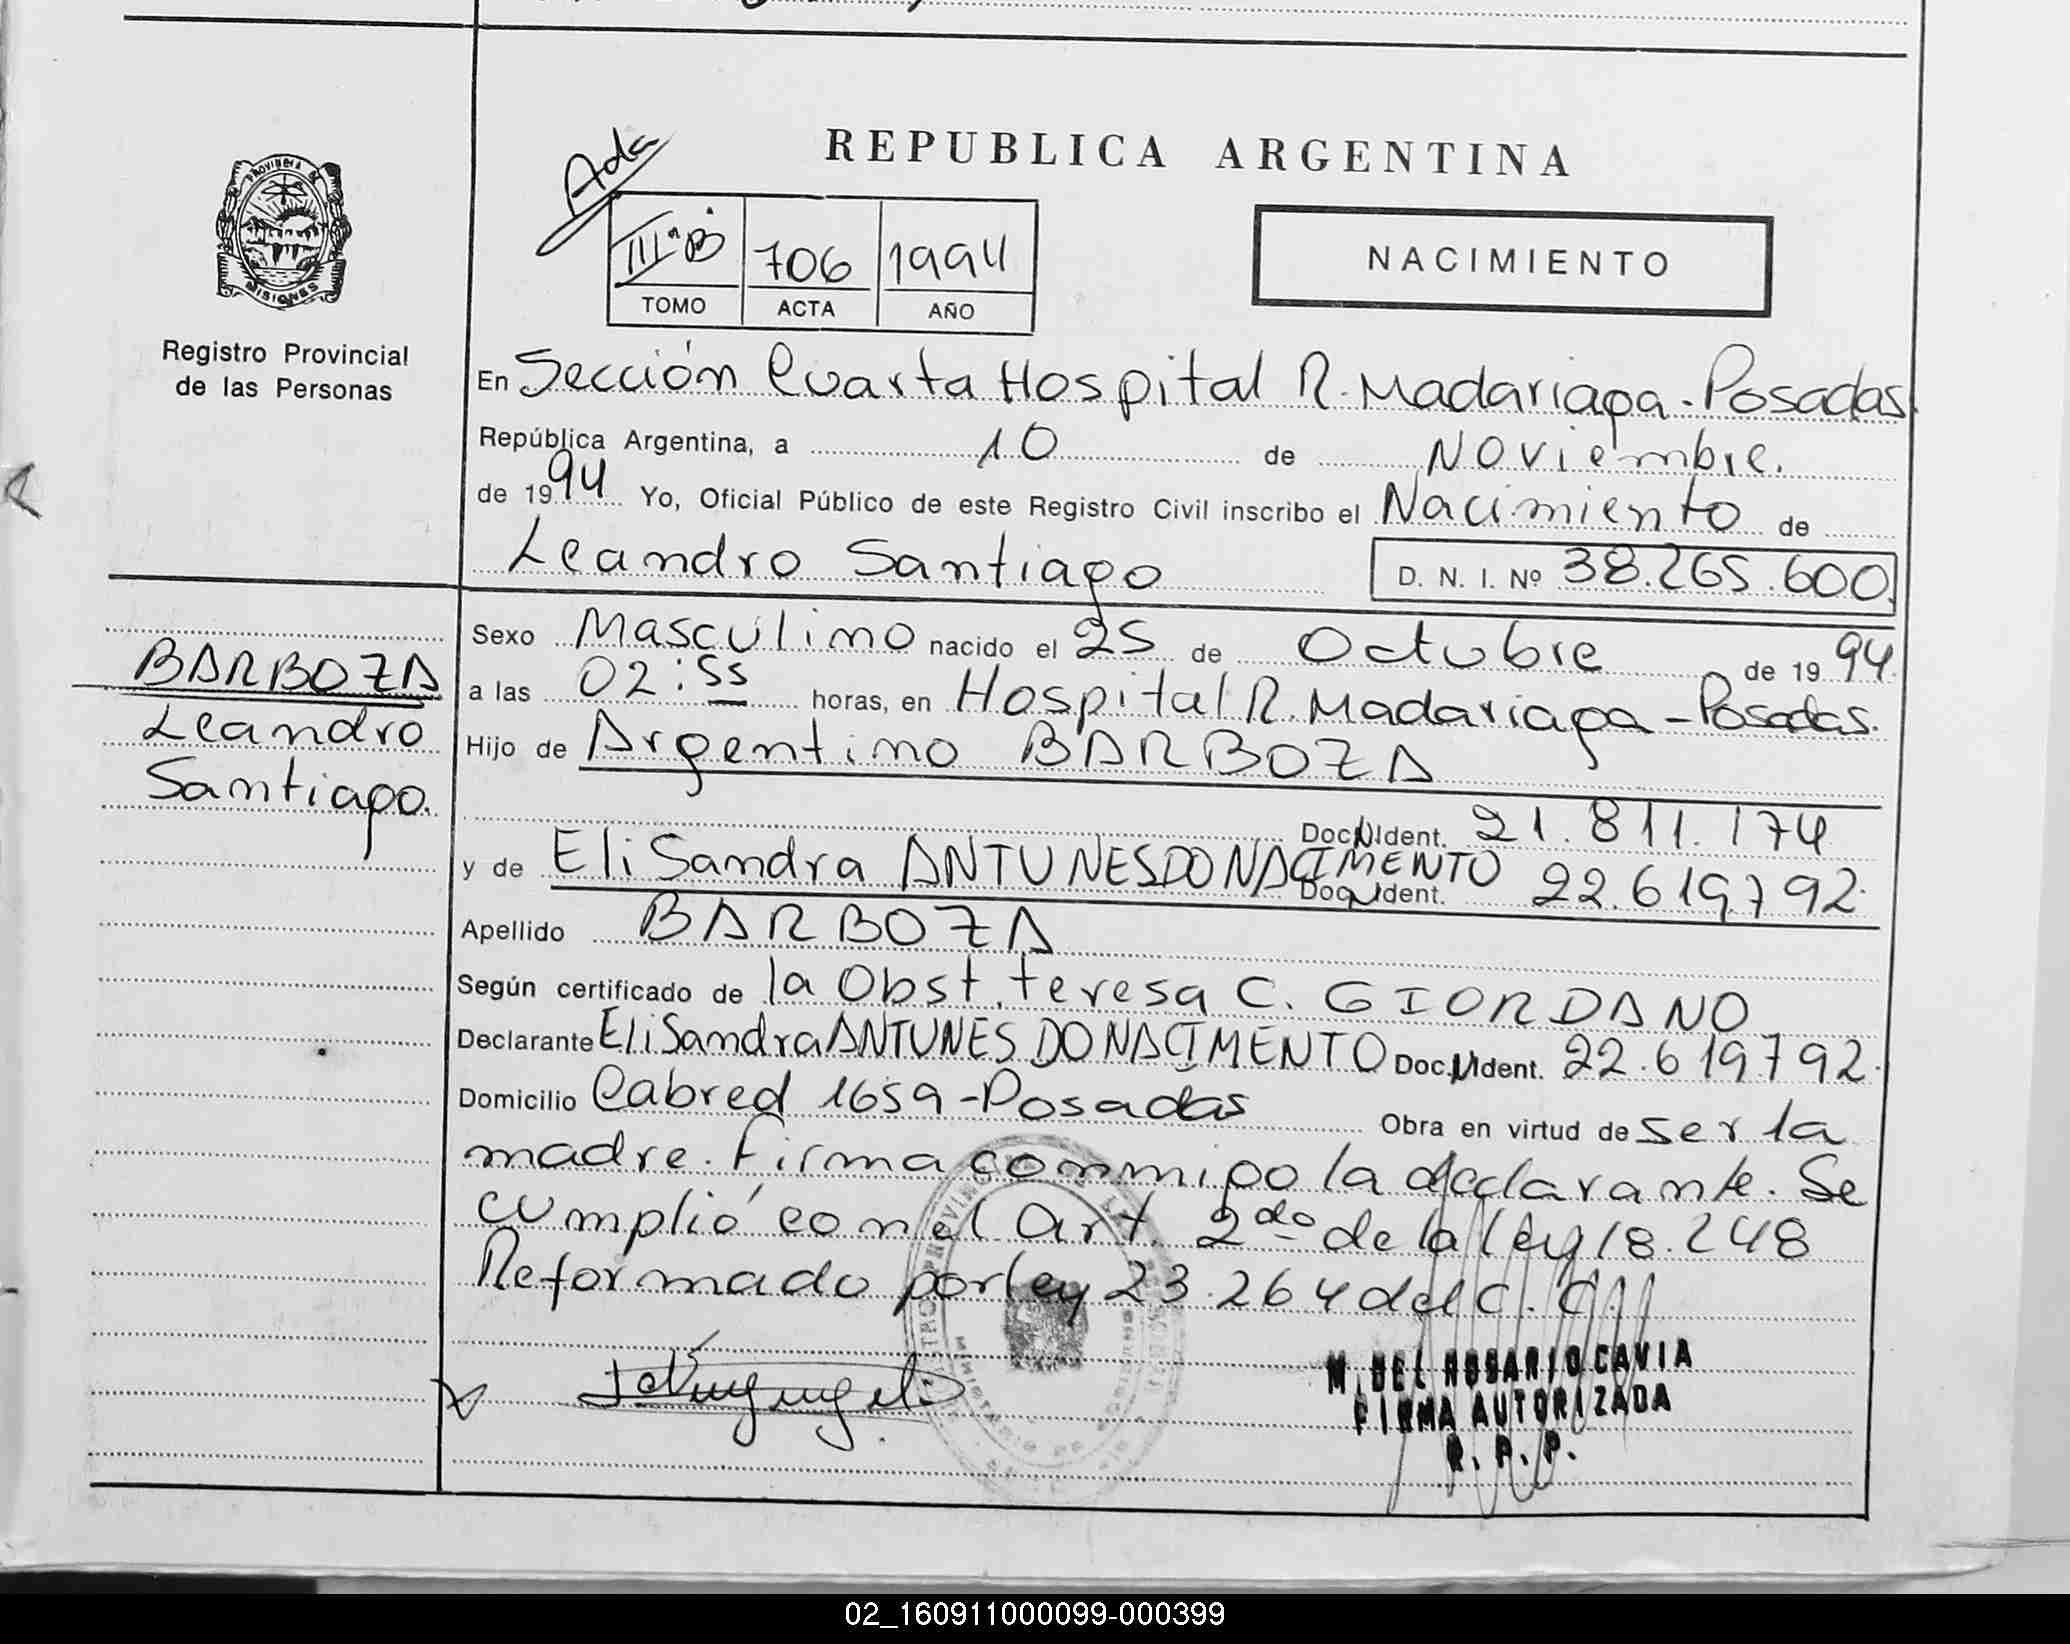 REPUBLICA ARGENTINA
Ada
III°B 706 1994
TOMO ACTA AÑO
NACIMIENTO
PROVINCIA DE
MISIONES
Registro Provincial
de las Personas
En Sección Cuarta Hospital R. Madariaga - Posadas.
República Argentina, a 10 de Noviembre.
de 1994 Yo, Oficial Público de este Registro Civil inscribo el Nacimiento de
Leandro Santiago D. N. I. Nº 38.265.600
BARBOZA
Leandro
Santiago.
Sexo Masculino nacido el 25 de Octubre de 1994.
a las 02:55 horas, en Hospital R. Madariaga - Posadas.
Hijo de Argentino BARBOZA
Doc. N. Ident. 21.811.174
y de EliSandra ANTUNES DO NACIMENTO Doc. N. Ident. 22.619.792
Apellido BARBOZA
Según certificado de la Obst. teresa C. GIORDANO
Declarante EliSandra ANTUNES DO NACIMENTO Doc. N. Ident. 22.619.792.
Domicilio Cabred 1659 - Posadas Obra en virtud de ser la
madre. Firma conmigo la declarante. Se
cumplió con el Art. 2do de la ley 18.248
Reformado por ley 23.264 del C. C.
M. DEL ROSARIO CAVIA
FIRMA AUTORIZADA
R. P. P.
02_160911000099-000399